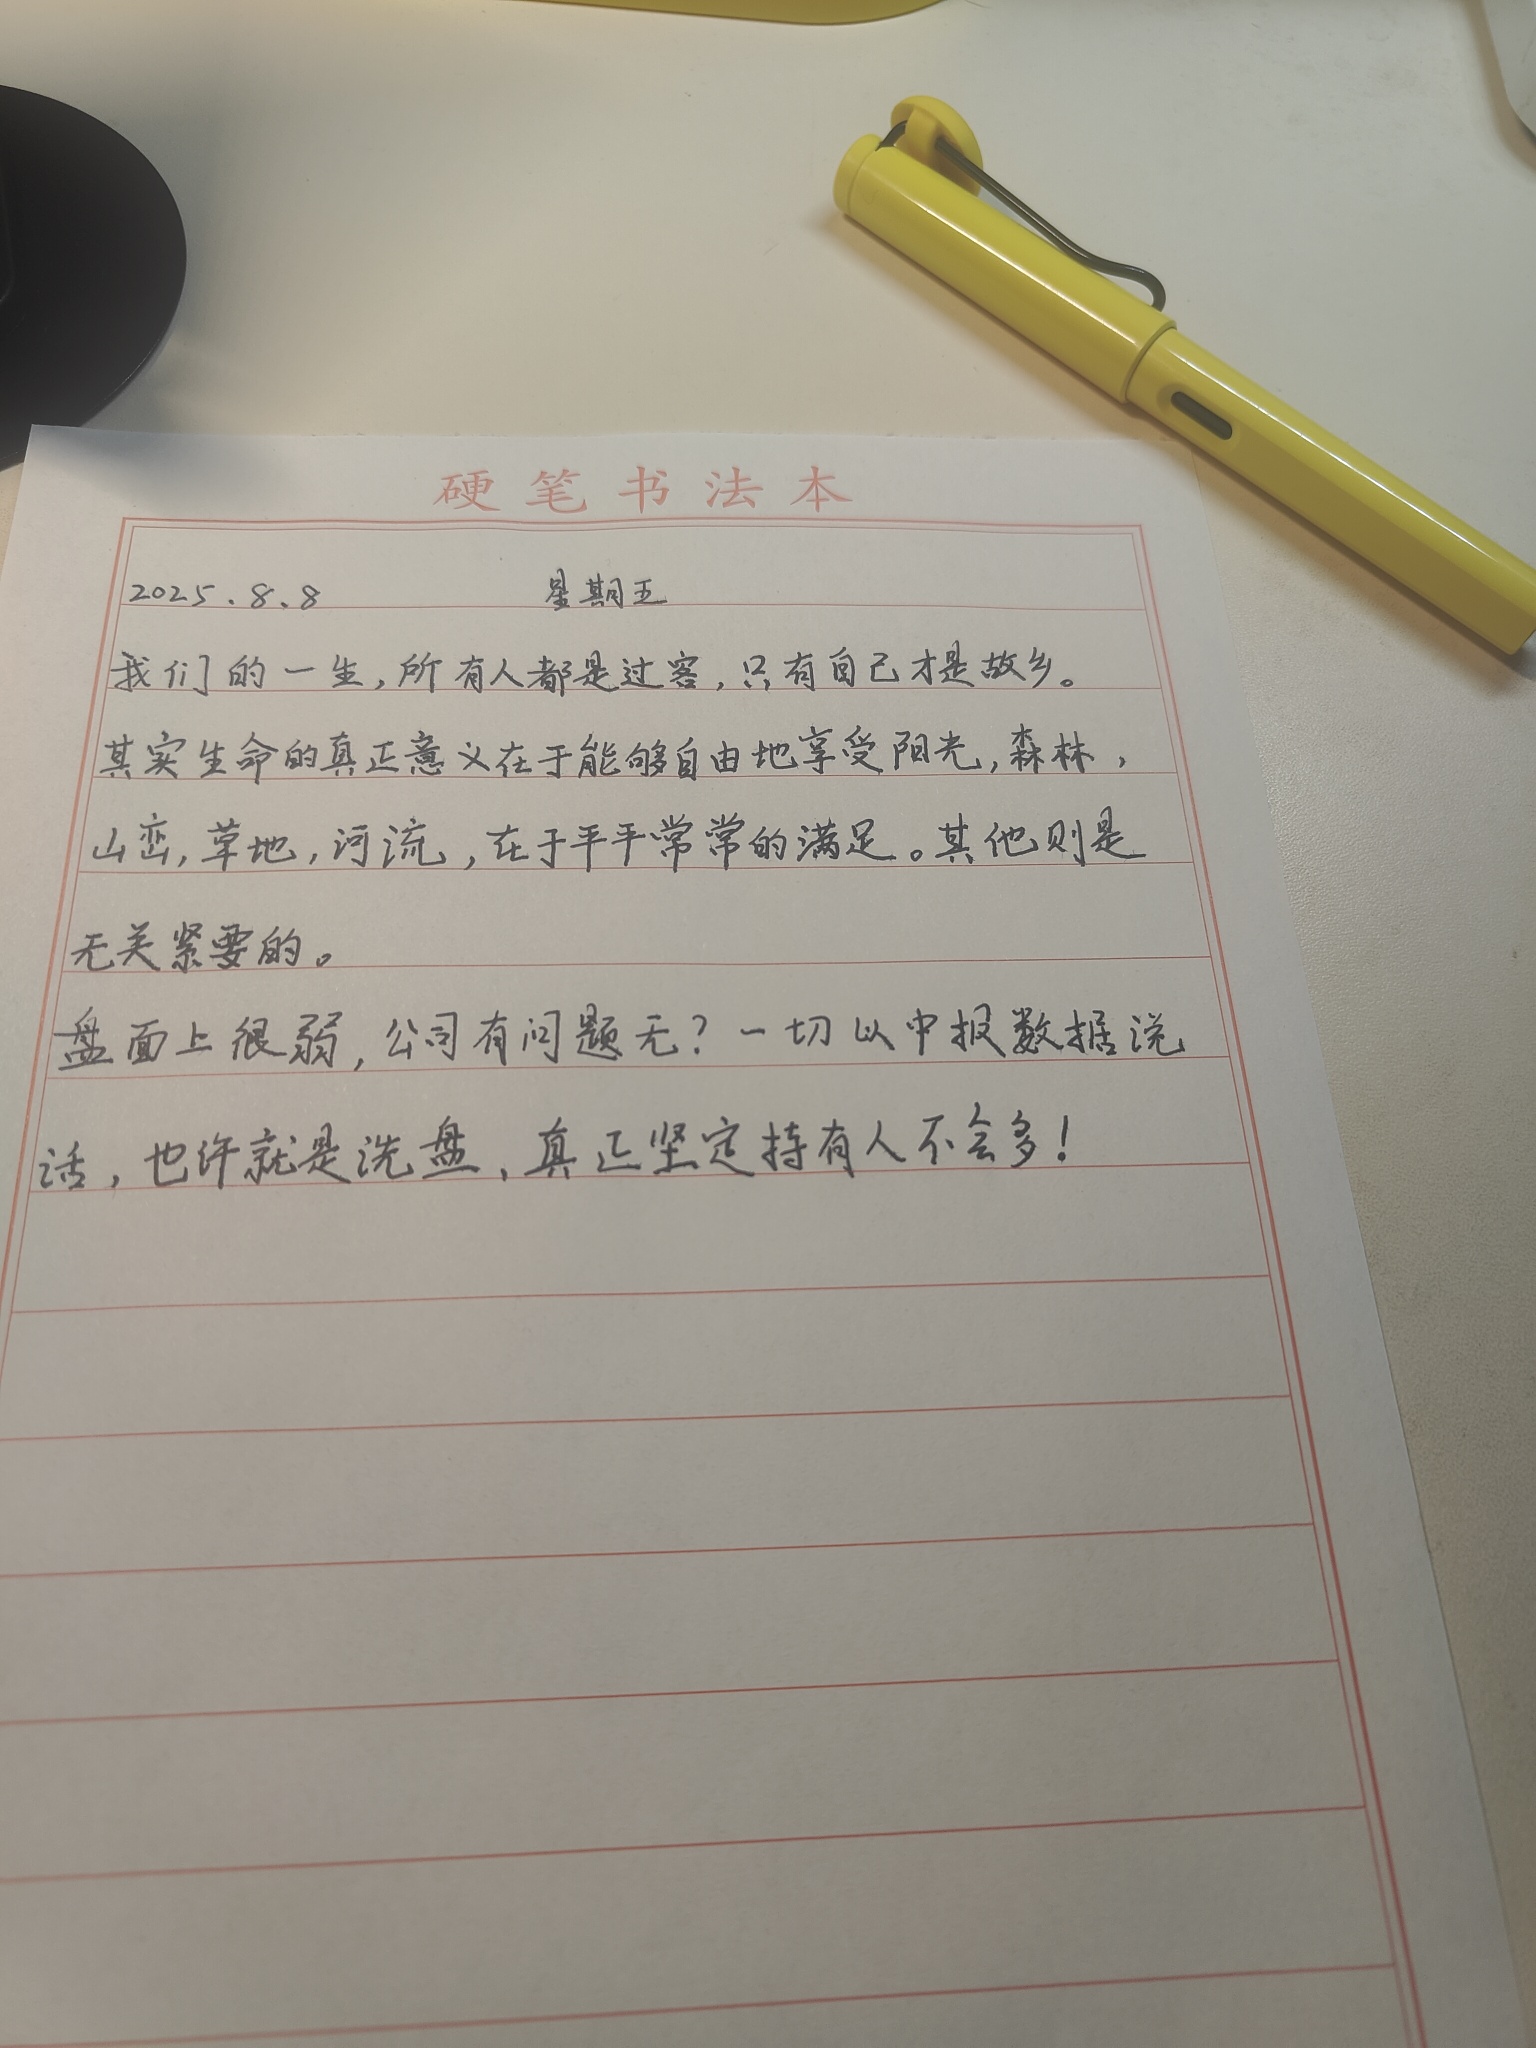 硬笔书法本
2025.8.8 星期五
我们的一生,所有人都是过客,只有自己才是故乡。
其实生命的真正意义在于能够自由地享受阳光,森林,
山峦,草地,河流,在于平平常常的满足。其他则是
无关紧要的。
盘面上很弱,公司有问题无?一切以中报数据说
话,也许就是洗盘,真正坚定持有人不会多!